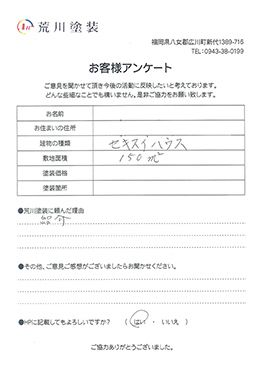 荒川塗装
福岡県八女郡広川町新代1389-716
TEL:0943-38-0199
お客様アンケート
ご意見を聞かせて頂き今後の活動に反映したいと考えております。
どんな些細なことでも構いません。是非ご協力をお願い致します。
お名前
お住まいの住所
建物の種類 ゼキスイハウス
敷地面積 150㎡
塗装価格
塗装箇所
●荒川塗装に頼んだ理由
紹介
●その他、ご意見ご感想がございましたらお聞かせください。
●HPに記載してもよろしいですか? ( はい ・ いいえ )
ご協力ありがとうございました。